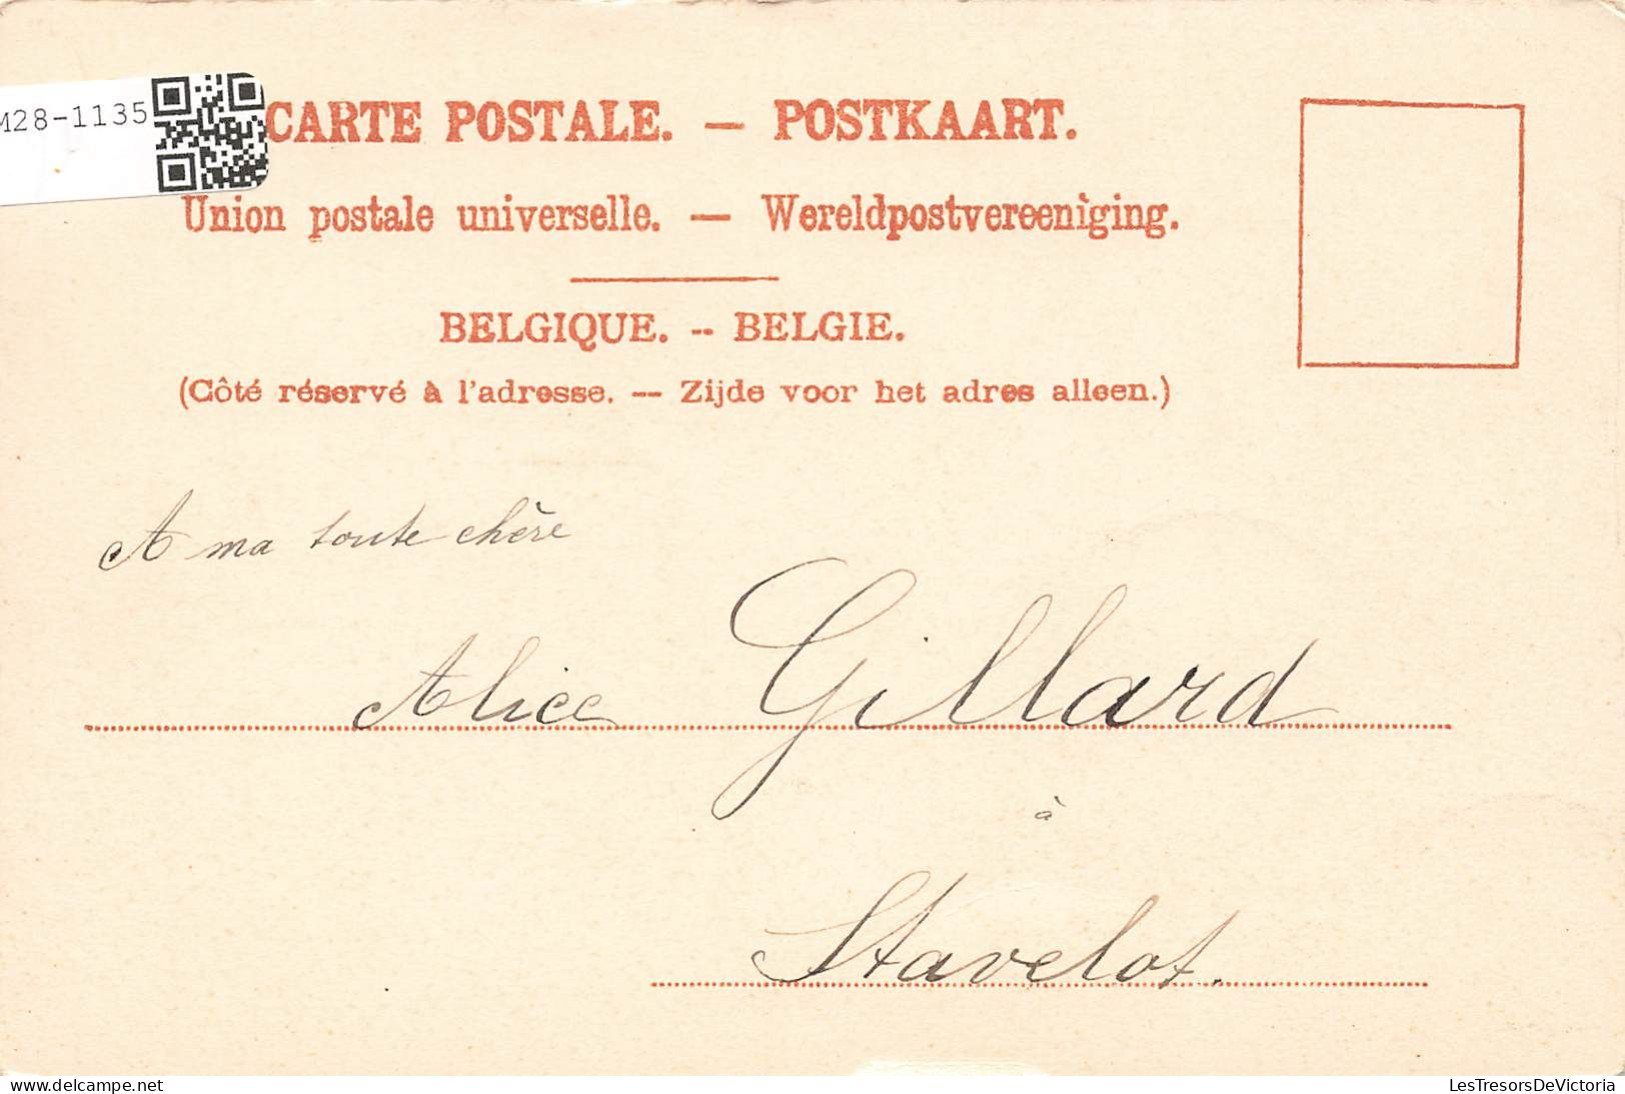 M28-1135
CARTE POSTALE. — POSTKAART.
Union postale universelle. — Wereldpostvereeniging.
BELGIQUE. -- BELGIE.
(Côté réservé à l'adresse. -- Zijde voor het adres alleen.)
A ma toute chère
Alice Gillard
à
Stavelot.
www.delcampe.net
LesTresorsDeVictoria